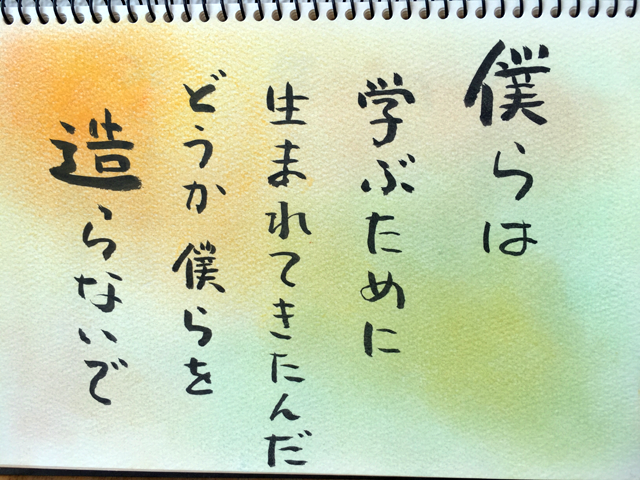 僕らは
学ぶために
生まれてきたんだ
どうか 僕らを
造らないで